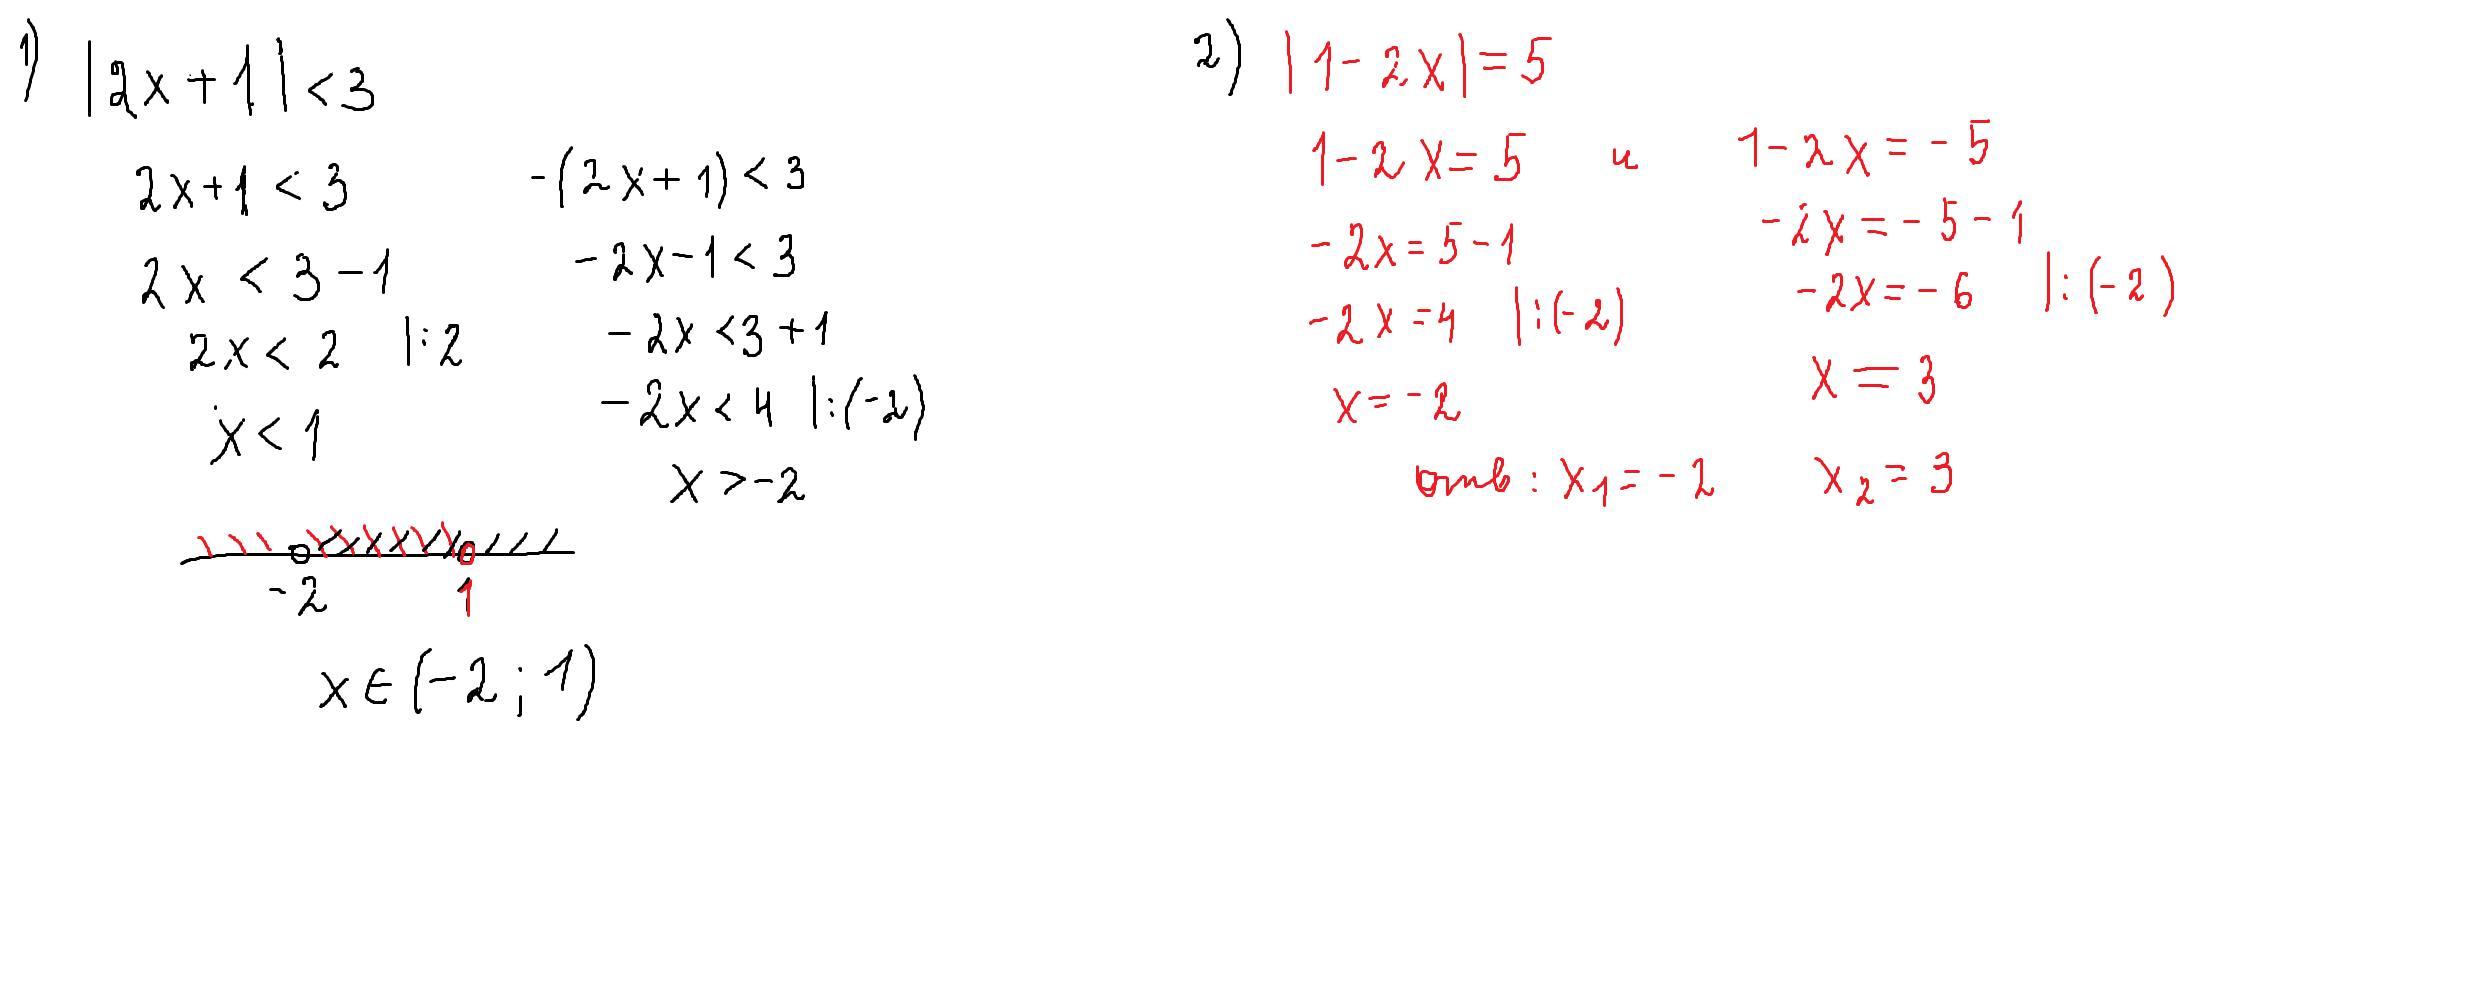 1) |2x+1|<3
2x+1<3 -(2x+1)<3
2x<3-1 -2x-1<3
2x<2 |:2 -2x<3+1
x<1 -2x<4 |:(-2)
x>-2
-2 1
x∈(-2;1)
2) |1-2x|=5
1-2x=5 и 1-2x=-5
-2x=5-1 -2x=-5-1
-2x=4 |:(-2) -2x=-6 |:(-2)
x=-2 x=3
отв: x₁=-2 x₂=3